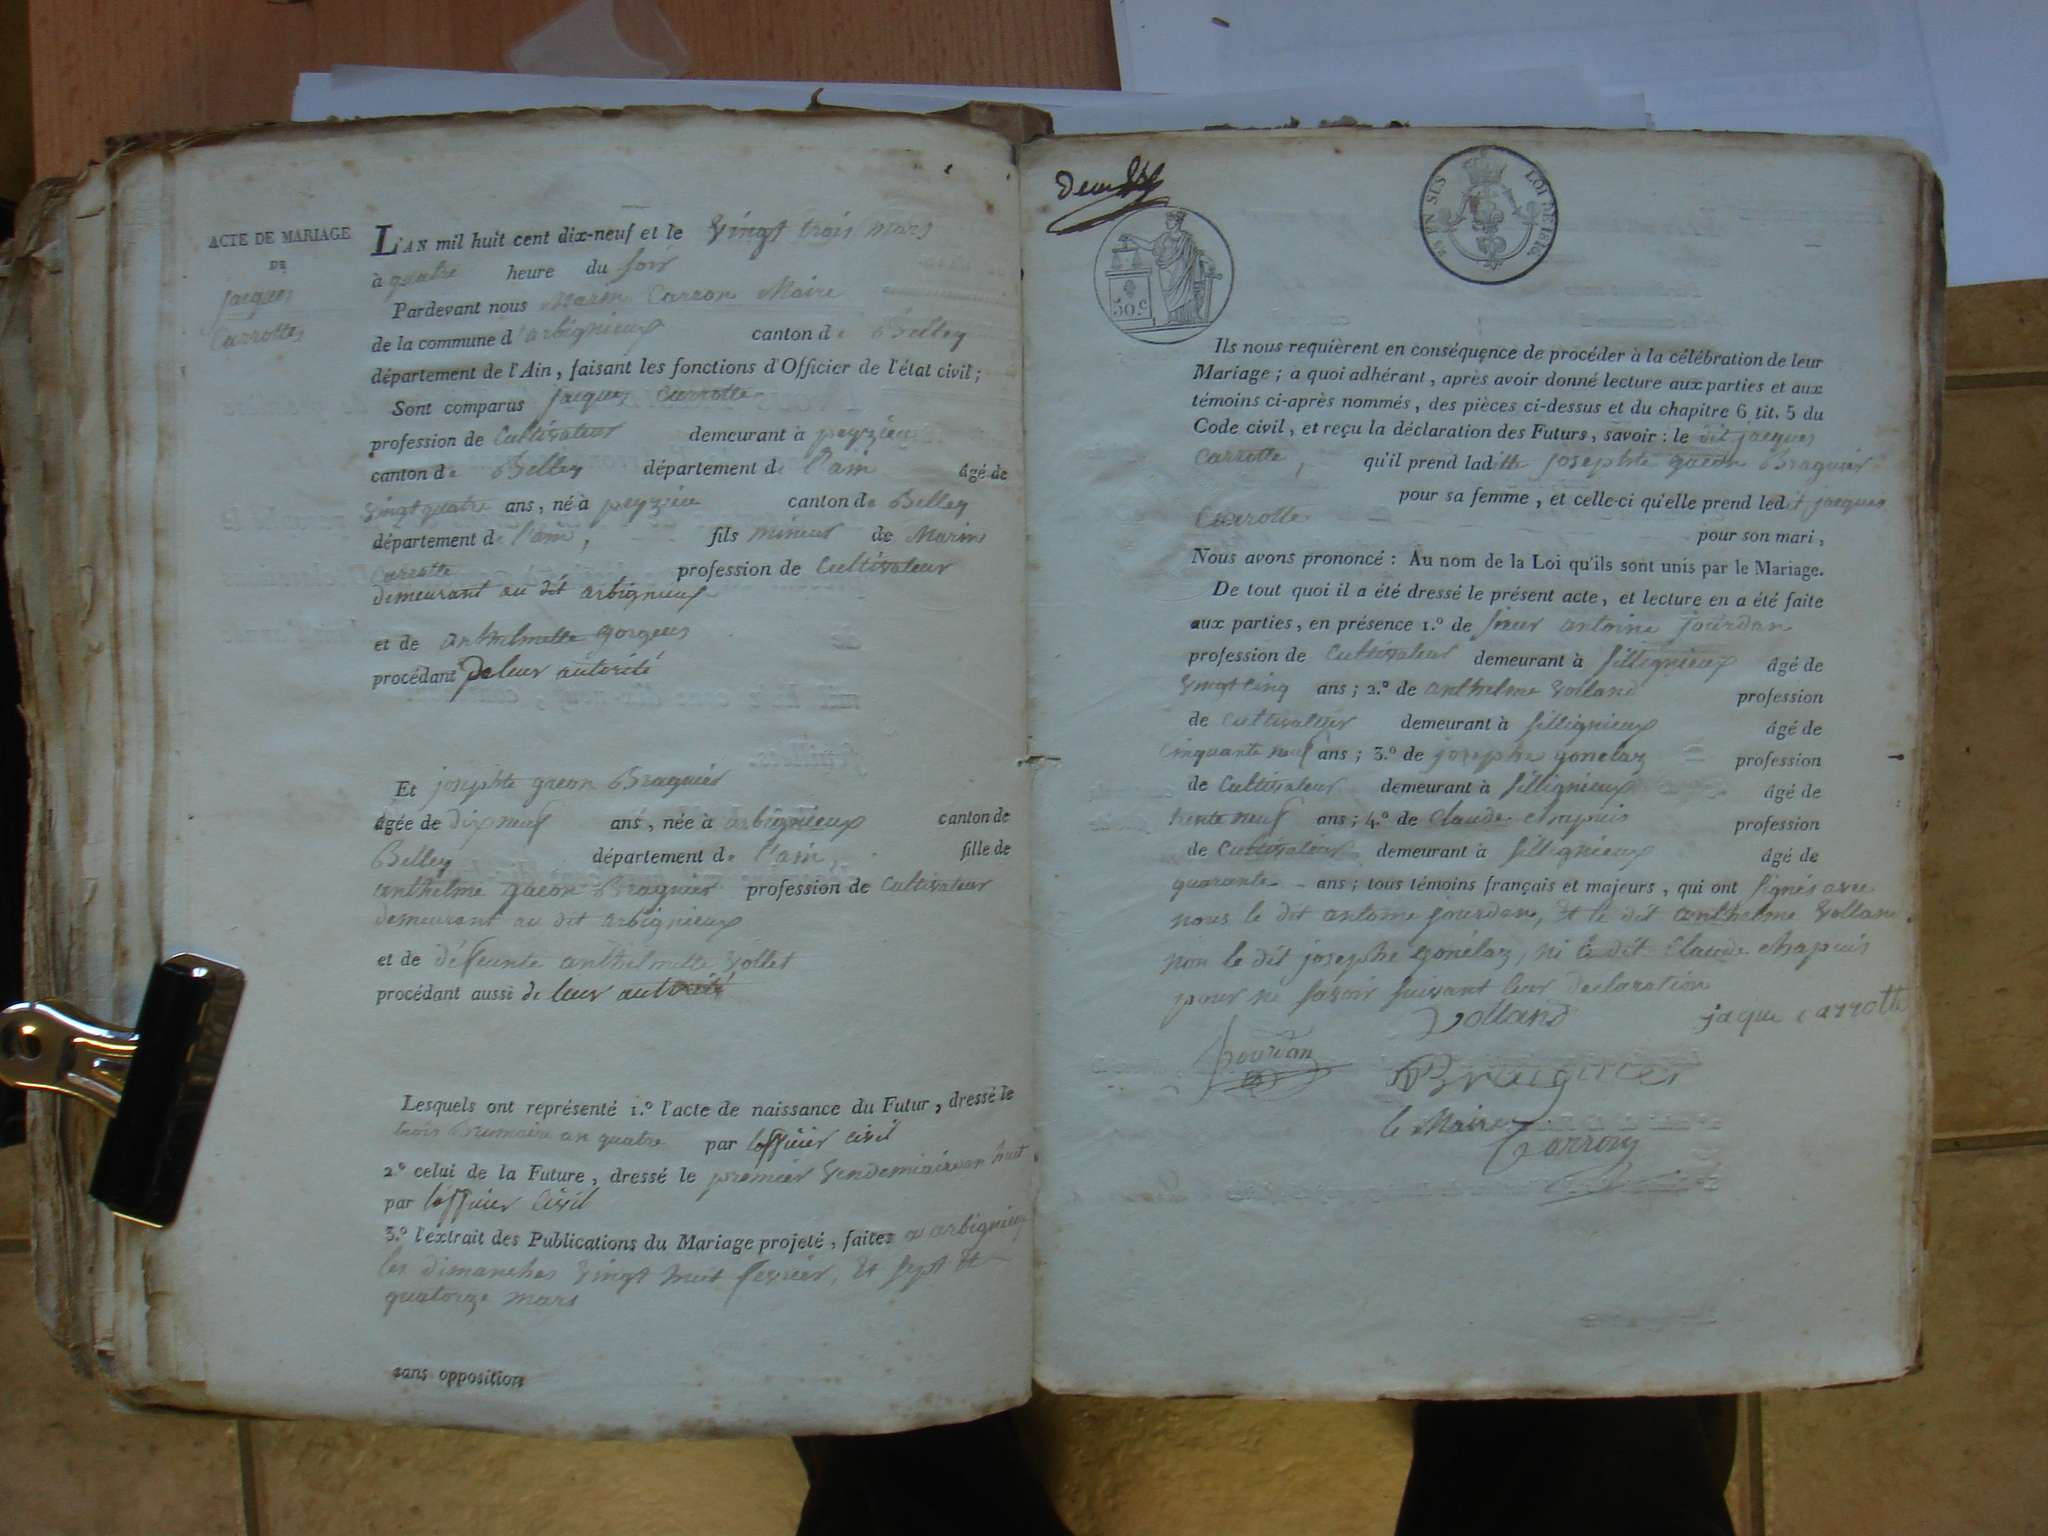 ACTE DE MARIAGE
DE
jacques
Carrotte
L'AN mil huit cent dix-neuf et le vingt trois mars
à quatre heure du soir
Pardevant nous Marin Carron Maire
de la commune d'arbignieux canton de Belley
département de l'Ain, faisant les fonctions d'Officier de l'état civil;
Sont comparus jacques Carrotte
profession de Cultivateur demeurant à peyzieu
canton de Belley département de l'ain âgé de
vingt quatre ans, né à peyzieu canton de Belley
département de l'ain, fils mineur de Marin
Carrotte profession de Cultivateur
demeurant au dit arbignieux
et de anthelmette gorgeus
procédant de leur autorité
Et josephte gueon Bragnier
âgée de dix neuf ans, née à arbignieux canton de
Belley département de l'ain, fille de
anthelme gueon Bragnier profession de Cultivateur
demeurant au dit arbignieux
et de défeunte anthelmette vollet
procédant aussi de leur autorité
Lesquels ont représenté 1.º l'acte de naissance du Futur, dressé le
trois Brumaire an quatre par l'officier civil
2º celui de la Future, dressé le premier vendemiaire an huit
par l'officier civil
3.º l'extrait des Publications du Mariage projeté, faites a arbignieux
les dimanches vingt huit fevrier, et sept et
quatorze mars
sans opposition
50.c
LOI DE 1816.
Ils nous requièrent en conséquence de procéder à la célébration de leur
Mariage; à quoi adhérant, après avoir donné lecture aux parties et aux
témoins ci-après nommés, des pièces ci-dessus et du chapitre 6 tit. 5 du
Code civil, et reçu la déclaration des Futurs, savoir: le dit jacques
Carrotte, qu'il prend laditte josephte gueon Bragnier
pour sa femme, et celle-ci qu'elle prend ledit jacques
Carrotte
pour son mari,
Nous avons prononcé: Au nom de la Loi qu'ils sont unis par le Mariage.
De tout quoi il a été dressé le présent acte, et lecture en a été faite
aux parties, en présence 1.º de sieur antoine jourdan
profession de Cultivateur demeurant à sillignieux âgé de
vingt cinq ans; 2.º de anthelme volland profession
de Cultivateur demeurant à sillignieux âgé de
Cinquante neuf ans; 3.º de josephe gonelaz profession
de Cultivateur demeurant à sillignieux âgé de
trente neuf ans; 4.º de Claude chapuis profession
de Cultivateur demeurant à sillignieux âgé de
quarante ans; tous témoins français et majeurs, qui ont signés avec
nous le dit antoine jourdan, et le dit anthelme volland
non le dit josephe gonélaz, ni le dit Claude chapuis
pour ne savoir suivant leur declaration
volland jaque carrotte
jourdan
Bragnier
le Maire
Carron